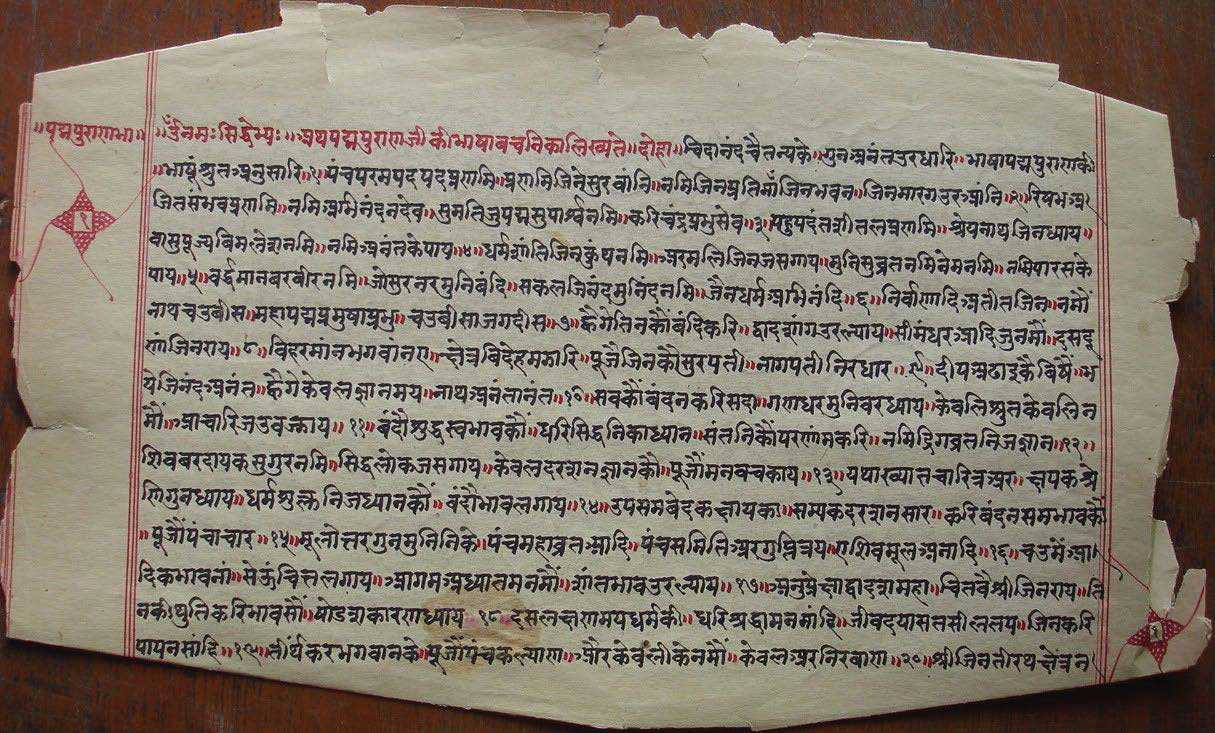 ॥पद्मपुराणभा॥
१
॥ॐनमःसिद्धेभ्यः॥अथपद्मपुराणजीकीभाषावचनिकालिख्यते॥दोहा॥चिदानंदचैतन्यके॥गुनअनंतउरधारि॥भाषापद्मपुराणकी
॥भाषूंश्रुतअनुसारि॥१॥पंचपरमपदपदप्रणमि॥प्रणमिजिनेसुरवांनि॥नमिजिनप्रतिमाँजिनभवन॥जिनमारगउरआंनि॥२॥रिषभअ
जितसंभवप्रणमि॥नमिअभिनंदनदेव॥सुमतिजुपद्मसुपार्श्वनमि॥करिचंद्रप्रभुसेव॥३॥पहुपदंतशीतलप्रणमि॥श्रेयनाथजिनध्याय॥
वासुपूज्यबिमलेशनमि॥नमिअनंतकेपाय॥४॥धर्मशांतिजिनकुंथनमि॥अरमलिजिनजसगाय॥मुनिसुव्रतनमिनेमनमि॥नमिपारसके
पाय॥५॥वर्द्धमानबरबीरनमि॥जोसुरनरमुनिबंदि॥सकलजिनंदमुनिंदनमि॥जैनधर्मअभिनंदि॥६॥निर्वाणादिअतीतजिन॥नमौं
नाथचउबीस॥महापद्मप्रमुषाप्रभु॥चउबीसाजगदीस॥७॥ह्वैगेतिनकौंबंदिकरि॥द्वादशांगउरल्याय॥सीमंधरआदिजुनमौं॥दसदू
णंजिनराय॥८॥बिहरमांनभगवांनए॥क्षेत्रबिदेहमझारि॥पूजैजिनकौसुरपती॥नागपतीनिरधार॥९॥दीपअढाइकैबिषैं॥भ
येजिनंदअनंत॥ह्वैगेकेवलज्ञानमय॥नाथअनंतानंत॥१०॥सबकौंबंदनकरिसदा॥गणधरमुनिवरध्याय॥केवलिश्रुतकेवलिन
मौं॥आचारिजउवज्झाय॥११॥बंदौशुद्धस्वभावकौं॥धरिसिद्धनिकाध्यान॥संतनिकौंपरणंमकरि॥नमिद्रिगव्रतनिजज्ञान॥१२॥
शिवबरदायकसुगुरनमि॥सिद्धलोकजसगाय॥केवलदरशनज्ञानकौ॥पूजौंमनबचकाय॥१३॥यथाख्यातचारित्रअर॥क्षपकश्रे
णिगुनध्याय॥धर्मशुक्लनिजध्यानकौं॥बंदौभावलगाय॥१४॥उपसमबेदकक्षायका॥सम्यकदरशनसार॥करिबंदनसमभावकौं
॥पूजौंपंचाचार॥१५॥मूलोत्तरगुनमुनिनिके॥पंचमहाव्रतआदि॥पंचसमितिअरगुप्तित्रय॥एशिवमूलअनादि॥१६॥चउमंआ।
दिकभावनां॥सेऊंचित्तलगाय॥आगमअध्यातमनमौं॥शांतभावउरल्याय॥१७॥अनुप्रेक्षाद्वादशमहा॥चितवैश्रीजिनराय॥ति
नकीथुतिकरिभावसौं॥षोडशकारणध्याय॥१८॥दसलक्षणमयधर्मकी॥धरिश्रद्धामनमांहि॥जीवदयासतसीलतप॥जिनकरि
पापनसांहि॥१९॥तीर्थंकरभगवानके॥पूजौंपंचकल्याण॥औरकेवलीकेनमौं॥केवलअरनिरवाण॥२०॥श्रीजिनतीरथक्षेत्रन
१